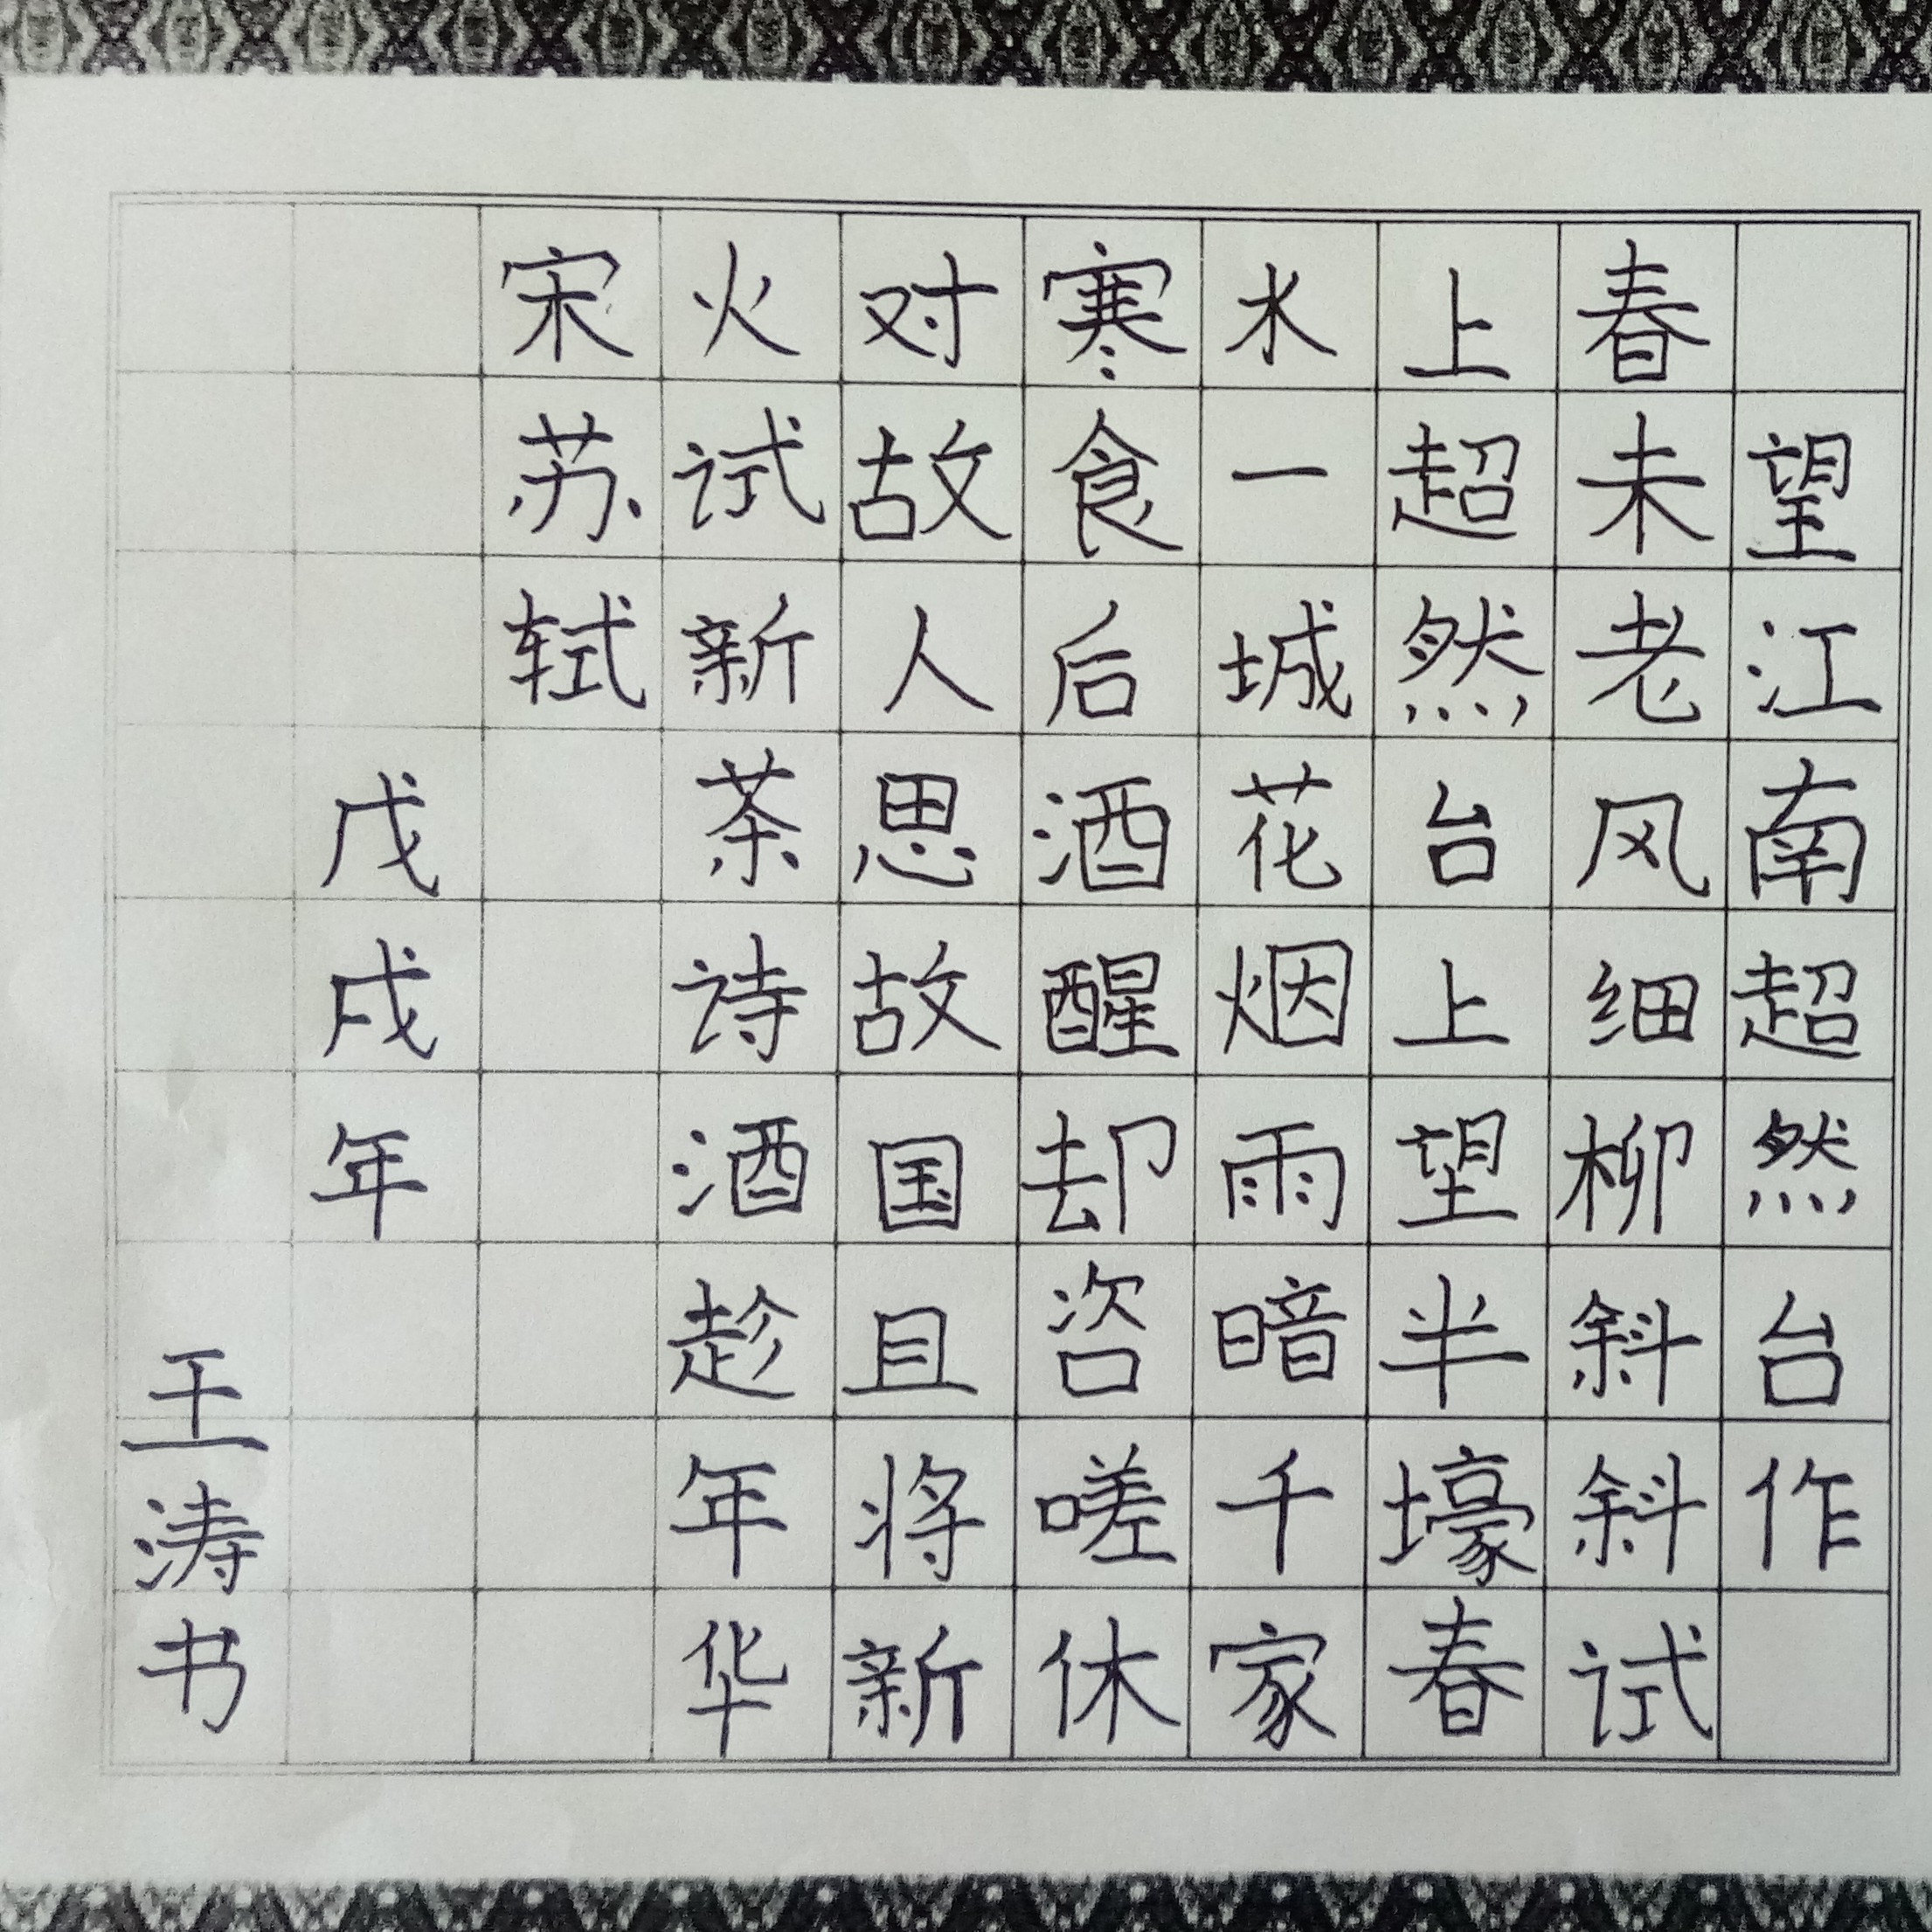 望江南超然台作
春未老风细柳斜斜试
上超然台上望半壕春
水一城花烟雨暗千家
寒食后酒醒却咨嗟休
对故人思故国且将新
火试新茶诗酒趁年华
宋苏轼
戊戌年
王涛书